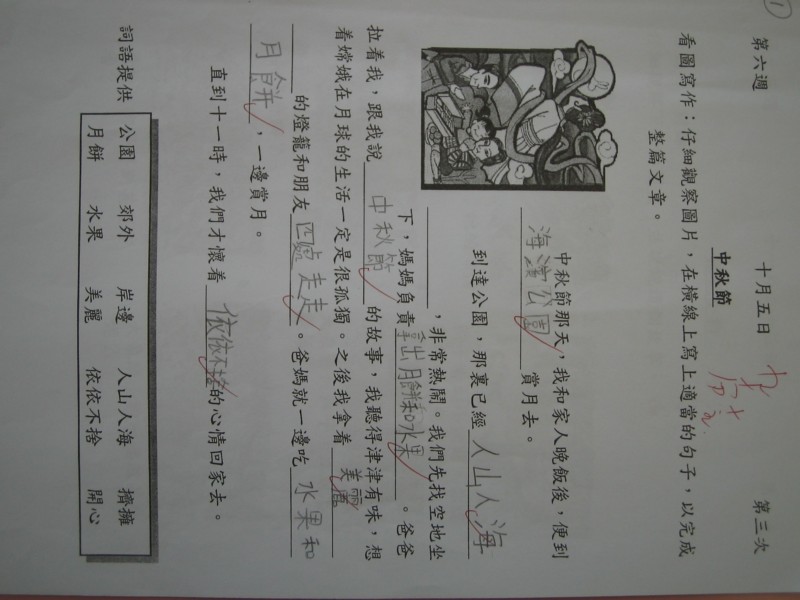 ①
第六週 十月五日 第三次
中秋節
看圖寫作：仔細觀察圖片，在橫線上寫上適當的句子，以完成
整篇文章。
中秋節那天，我和家人晚飯後，便到
海濱公園賞月去。
到達公園，那裏已經人山人海
，非常熱鬧。我們先找空地坐
下，媽媽負責拿出月餅和水果。爸爸
拉着我，跟我說中秋節的故事，我聽得津津有味，想
着嫦娥在月球的生活一定是很孤獨。之後我拿着美麗
的燈籠和朋友四處走走。爸媽就一邊吃水果和
月餅，一邊賞月。
直到十一時，我們才懷着依依不捨的心情回家去。
詞語提供
公園 郊外 岸邊 人山人海 擠擁
月餅 水果 美麗 依依不捨 開心